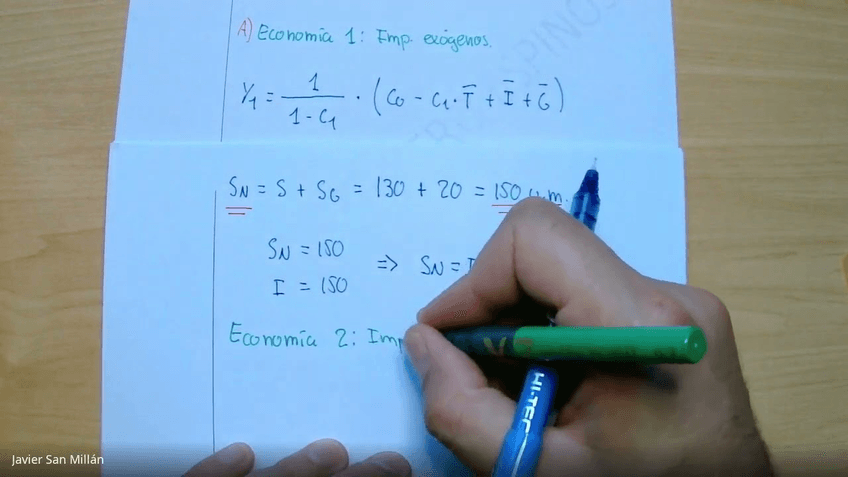 A) Economía 1: Imp. exógenos.
Y₁ = 1 / (1 - C₁) · (C₀ - C₁·T̅ + I̅ + G̅)
S_N = S + S_G = 130 + 20 = 150 u.m.
S_N = 150
I = 150
=> S_N = I
Economía 2: Imp
HI-TEC
Javier San Millán